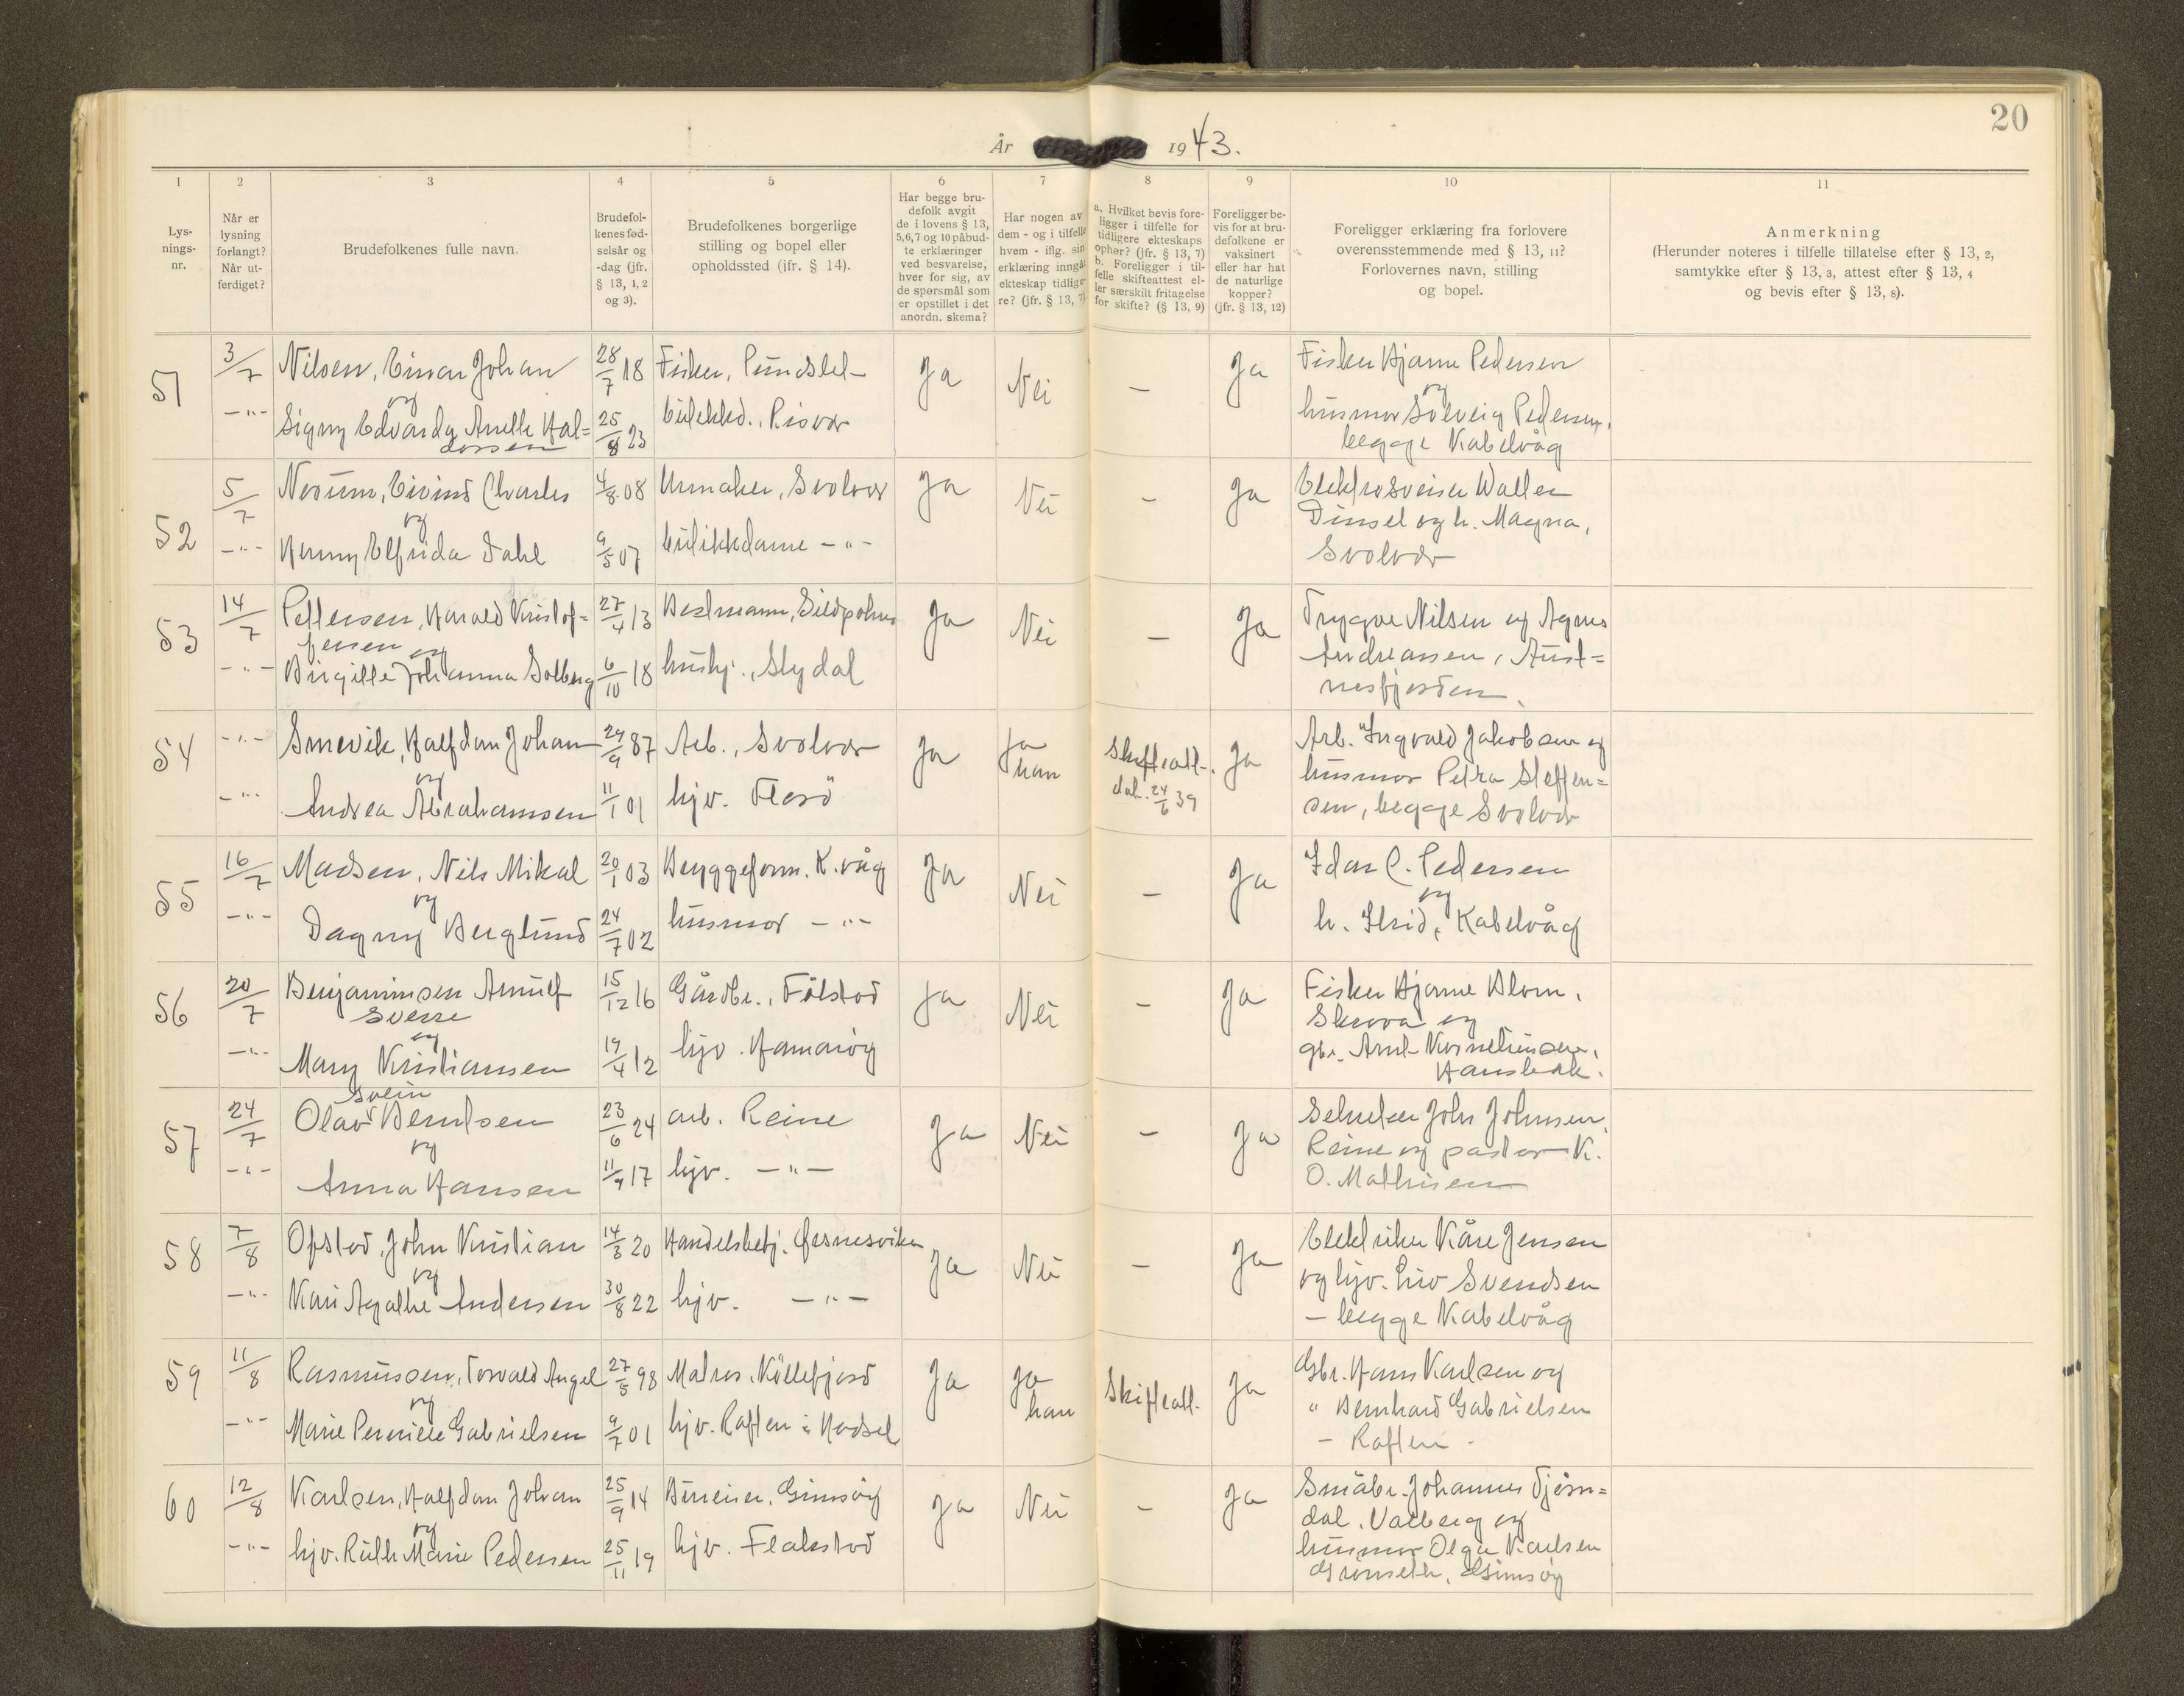 20
År 1943.
1 2 3 4 5 6 7 8 9 10 11
Lys-
nings-
nr.
Når er
lysning
forlangt?
Når ut-
ferdiget?
Brudefolkenes fulle navn.
Brudefol-
kenes fød-
selsår og
-dag (jfr.
§ 13, 1, 2
og 3).
Brudefolkenes borgerlige
stilling og bopel eller
opholdssted (jfr. § 14).
Har begge bru-
defolk avgit
de i lovens § 13,
5,6,7 og 10 påbud-
te erklæringer
ved besvarelse,
hver for sig, av
de spørsmål som
er opstillet i det
anordn. skema?
Har nogen av
dem - og i tilfelle
hvem - iflg. sin
erklæring inngå
ekteskap tidlige-
re? (jfr. § 13, 7)
a. Hvilket bevis fore-
ligger i tilfelle for
tidligere ekteskaps
ophør? (jfr. § 13, 7)
b. Foreligger i til-
felle skifteattest el-
ler særskilt fritagelse
for skifte? (§ 13, 9)
Foreligger be-
vis for at bru-
defolkene er
vaksinert
eller har hat
de naturlige
kopper?
(jfr. § 13, 12)
Foreligger erklæring fra forlovere
overensstemmende med § 13, 11?
Forlovernes navn, stilling
og bopel.
Anmerkning
(Herunder noteres i tilfelle tillatelse efter § 13, 2,
samtykke efter § 13, 3, attest efter § 13, 4
og bevis efter § 13, 8).
51 3/7 Nilsen, Einar Johan 28/7 18 Fisker, Ja Nei — Ja Fisker Bjarne Pedersen
og og
-"- Signy Edvarda Hal= 25/8 23 Risvær husmor Solveig Pedersen,
dorsen begge Kabelvåg
52 5/7 Nerum, Eivind Charles 4/8 08 Urmaker, Svolvær Ja Nei — Ja Elektrosveiser
og Dinsel og h. Magna,
-"- Henny Elfrida Dahl 9/5 07 butikkdame -"- Svolvær
53 14/7 Pettersen, Harald Kristof= 27/4 13 Bestmann, Ja Nei — Ja Trygve Nilsen og Agnes
fersen og Andreassen, Aust=
-"- Birgitte Johanna Solberg 6/10 18 hushj., Slydal nesfjorden.
54 -"- Smevik, Halfdan Johan 29/9 87 Arb., Svolvær Ja Ja han Skifteatt. Ja Arb. Ingvald Jakobsen og
og dat. 24/6 39 husmor Petra Steffen=
-"- Andrea Abrahamsen 11/1 01 hjv. Florö sen, begge Svolvær
55 16/7 Madsen, Nils Mikal 20/1 03 Bryggeform. K.våg Ja Nei — Ja Idar C. Pedersen
og og
-"- Dagny Berglund 24/7 02 husmor -"- h. Kabelvåg
56 20/7 Benjaminsen Arnulf 15/12 16 Gårdbr., Ja Nei - Ja Fisker Bjarne Blom,
Sverre Skrova og
og gbr. Arnt Korneliussen,
-"- Mary Kristiansen 19/4 12 hjv. Hamarøy Hansbak.
57 24/7 Olav Svein Berntsen 23/6 24 arb. Reine Ja Nei — Ja John Johnsen,
og Reine og pastor K.
-"- Anna Hansen 11/9 17 hjv. -"- O. Mathisen
58 7/8 Opstad, John Kristian 14/3 20 Handelsbetj. Ørsnesviken Ja Nei - Ja Elektriker Kåre Jensen
og og hjv. Liv Svendsen
-"- Kari Agathe Andersen 30/8 22 hjv. -"- — begge Kabelvåg
59 11/8 Rasmussen, Torvald Angel 27/5 98 Matros, Köllefjord Ja Ja han Skifteatt. Ja Gbr. Hans Karlsen og
og " Bernhard Gabrielsen
-"- Marie Gabrielsen 9/7 01 hjv. Raften i Hadsel — Raften -
60 12/8 Karlsen, Halfdan Johan 25/9 14 Bureiser, Gimsøy Ja Nei - Ja Småbr. Johannes Tjörn=
og dal, Valberg og
-"- hjv. Ruth Marie Pedersen 25/11 19 hjv. Flakstad husmor Olga Karlsen
Gimsøy